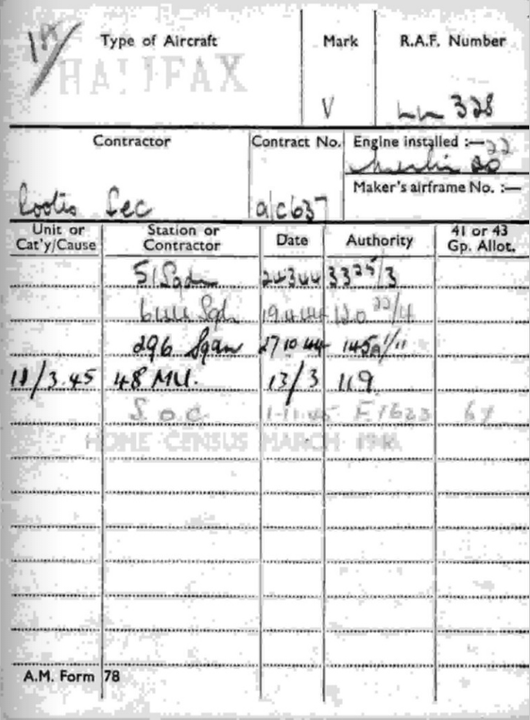 Type of Aircraft Mark R.A.F. Number
HALIFAX V LL 328
Contractor Contract No. Engine installed :— 22
Merlin 20
Maker's airframe No. :—
a/c637
Unit or Cat'y/Cause Station or Contractor Date Authority 41 or 43 Gp. Allot.
51 Sqdn 24 3 44 3325/3
644 Sqdn 19 4 44 22/4
296 Sqdn 27 10 44
11/3.45 48 MU. 13/3 119
S.O.C 1-11-45 E1623
HOME CENSUS MARCH 1946
A.M. Form 78